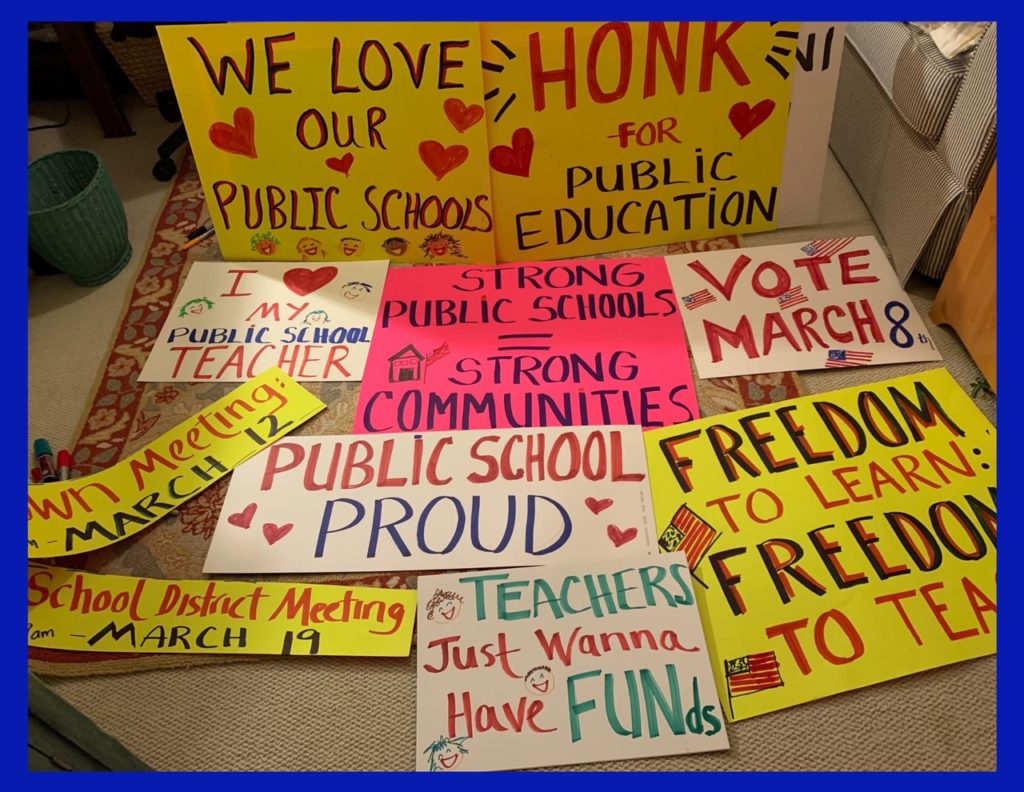 WE LOVE
OUR
PUBLIC SCHOOLS
HONK
FOR
PUBLIC
EDUCATION
NI
I
MY
PUBLIC SCHOOL
TEACHER
STRONG
PUBLIC SCHOOLS
=
STRONG
COMMUNITIES
VOTE
MARCH 8th
own Meeting:
- MARCH 12
PUBLIC SCHOOL
PROUD
FREEDOM
TO LEARN:
FREEDOM
TO TEA
School District Meeting
am - MARCH 19
TEACHERS
Just Wanna
Have FUNds